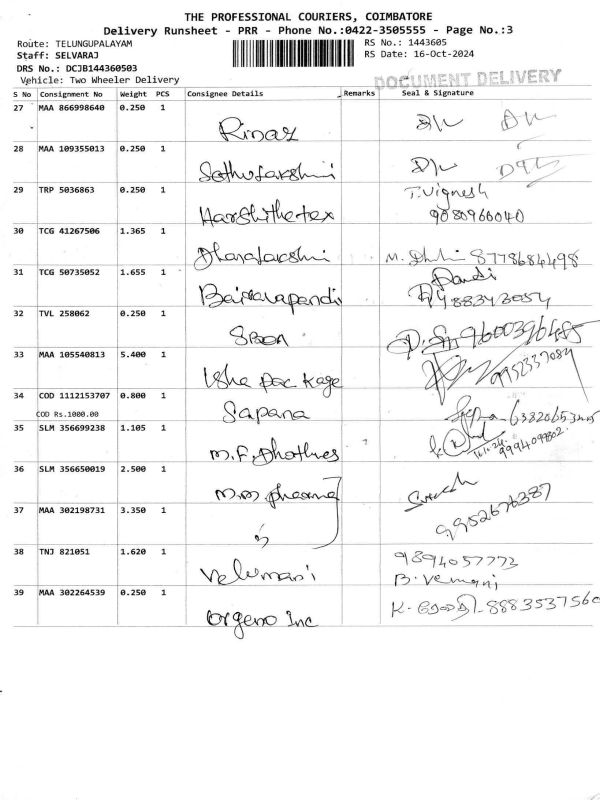 THE PROFESSIONAL COURIERS, COIMBATORE
Delivery Runsheet - PRR - Phone No.:0422-3505555 - Page No.:3
Route: TELUNGUPALAYAM RS No.: 1443605
Staff: SELVARAJ RS Date: 16-Oct-2024
DRS No.: DCJB144360503
Vehicle: Two Wheeler Delivery DOCUMENT DELIVERY
S No Consignment No Weight PCS Consignee Details Remarks Seal & Signature
27 MAA 866998640 0.250 1
28 MAA 109355013 0.250 1
29 TRP 5036863 0.250 1 T. Vignesh
Harshithetex 9080960040
30 TCG 41267506 1.365 1
Dhanalakshmi 8778684498
31 TCG 50735052 1.655 1 Pandi
32 TVL 258062 0.250 1
9600396485
33 MAA 105540813 5.400 1 9952337084
Usha Package
34 COD 1112153707 0.800 1
COD Rs.1000.00 Sapana
35 SLM 356699238 1.105 1 9994099802
36 SLM 356650019 2.500 1
M.M Pharma
37 MAA 302198731 3.350 1 9952676387
38 TNJ 821051 1.620 1 9894057772
Velumani
39 MAA 302264539 0.250 1 8883537560
Orgeno Inc